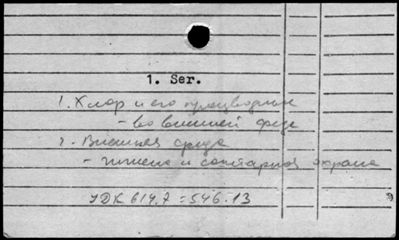 1. Ser.
1. Хлор и его производные
- во внешней среде
2. Внешняя среда
- гигиена и санитарная охрана
УДК 614.7 = 546.13